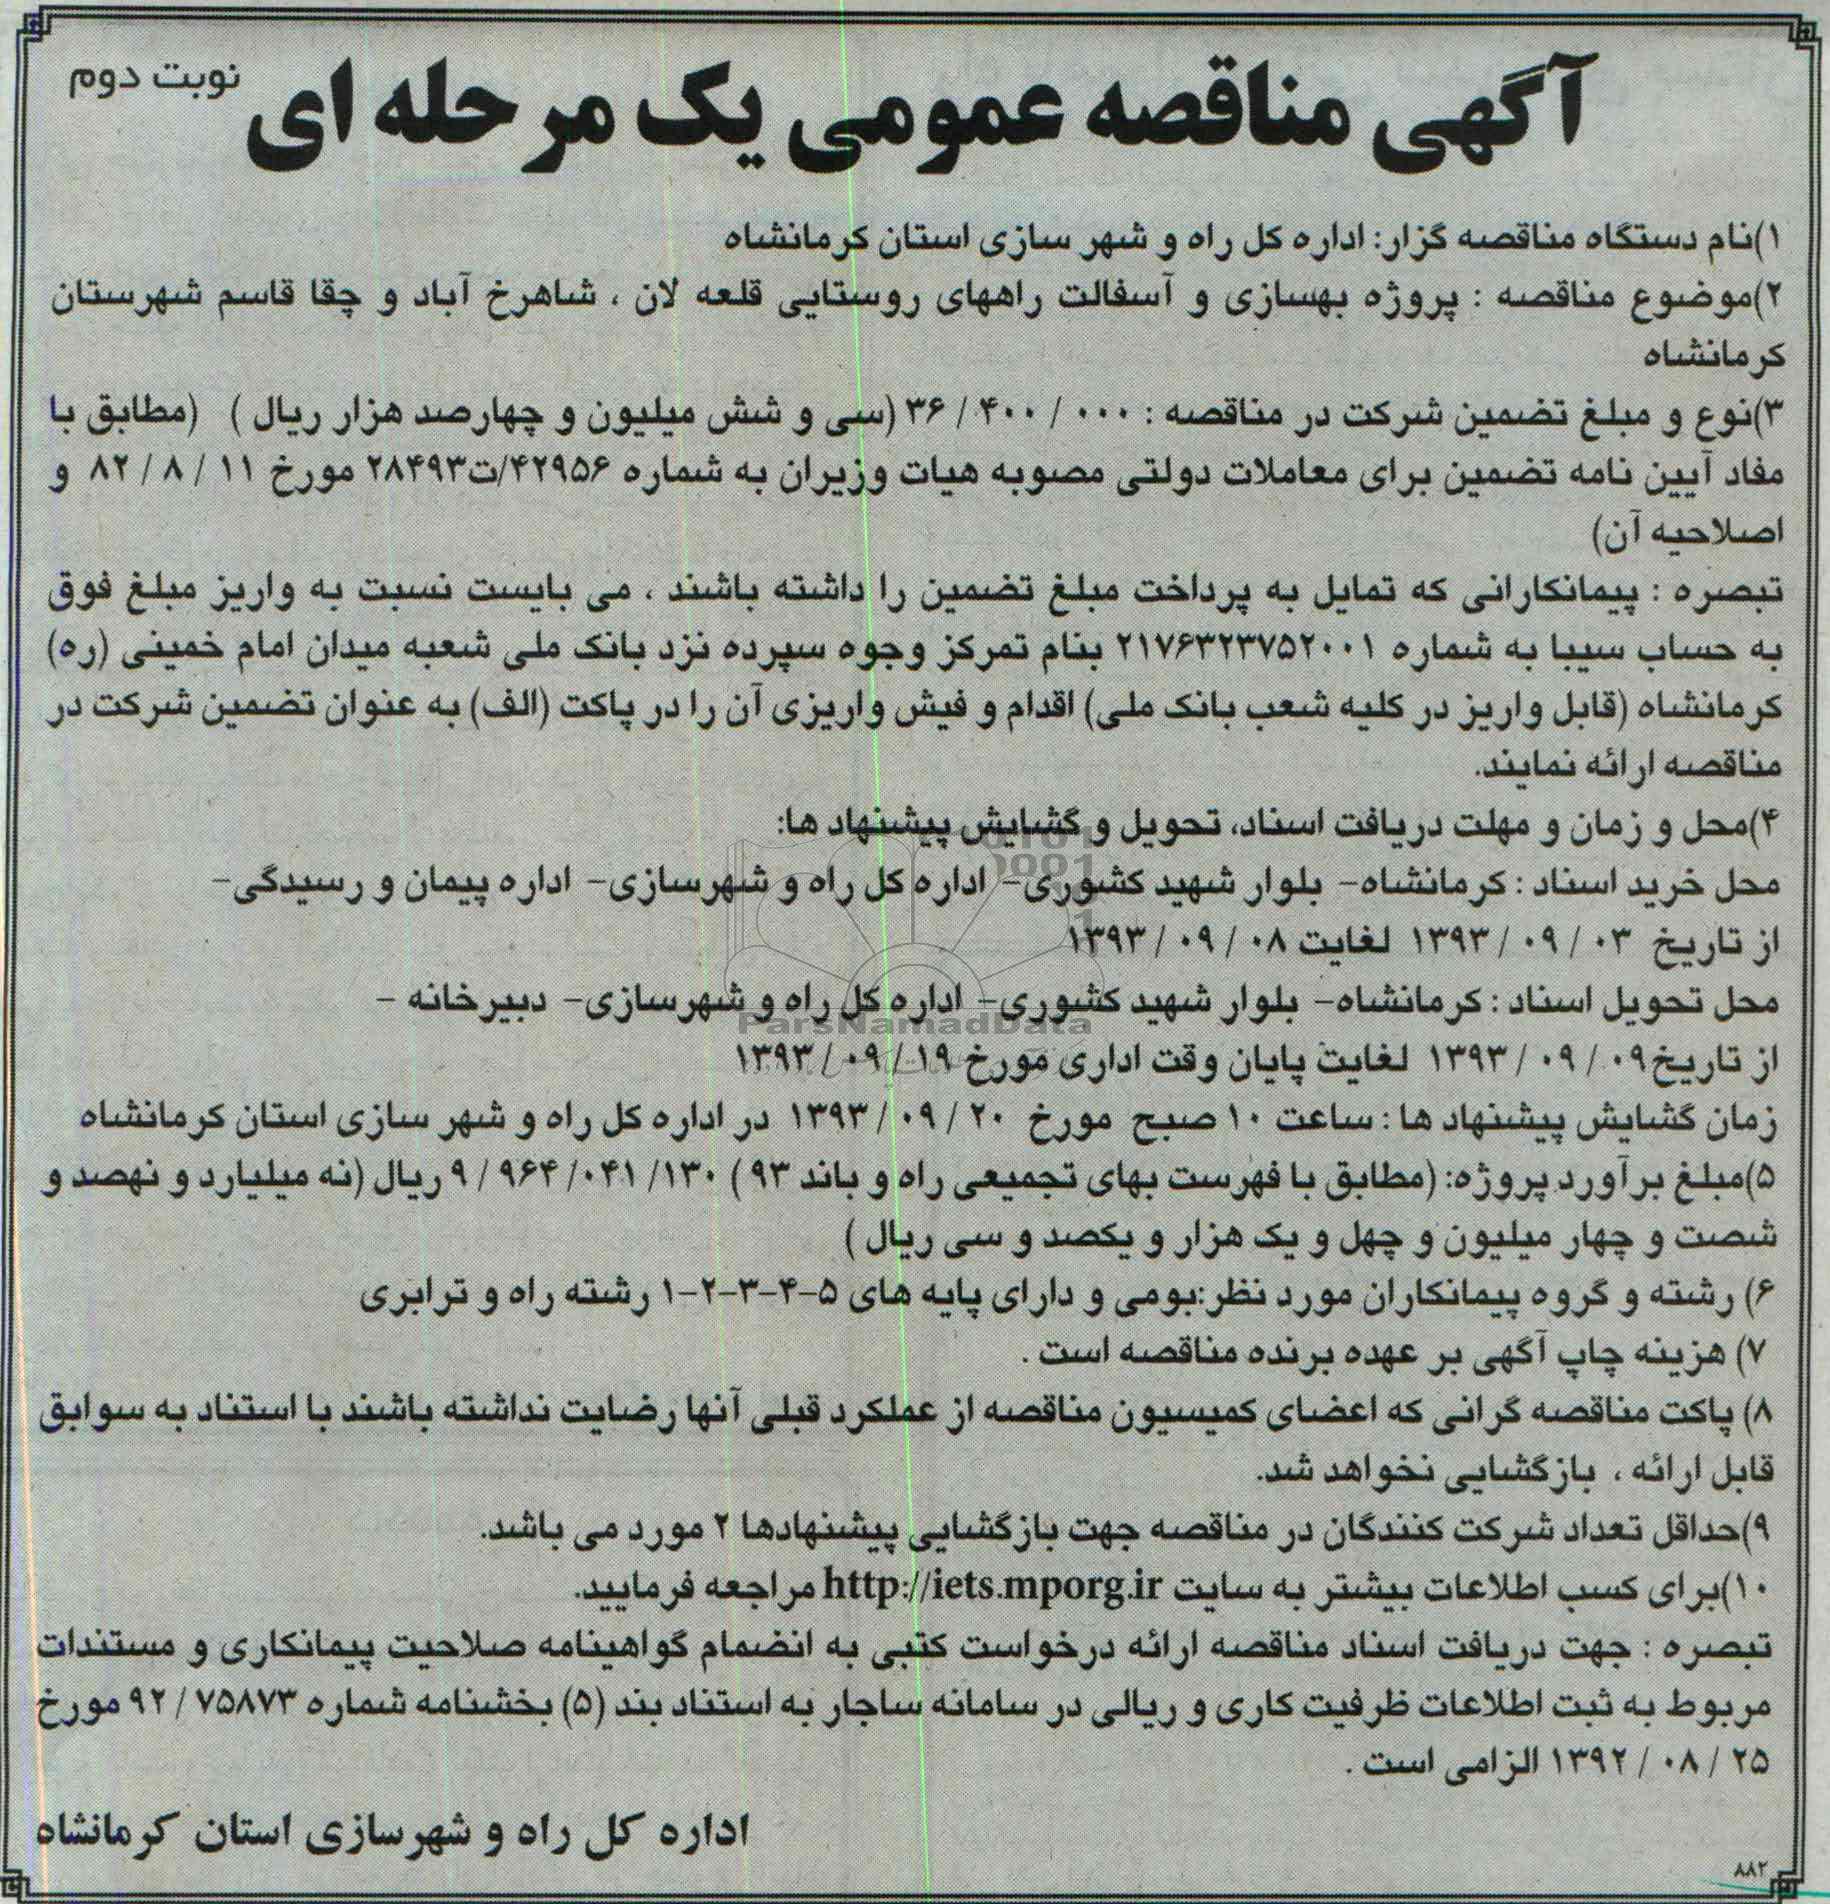 آگهی مناقصه عمومی یک مرحله ای
نوبت دوم
۱)نام دستگاه مناقصه گزار: اداره کل راه و شهر سازی استان کرمانشاه
۲)موضوع مناقصه : پروژه بهسازی و آسفالت راههای روستایی قلعه لان ، شاهرخ آباد و چقا قاسم شهرستان
کرمانشاه
۳)نوع و مبلغ تضمین شرکت در مناقصه : ۳۶/۴۰۰/۰۰۰ (سی و شش میلیون و چهارصد هزار ریال ) (مطابق با
مفاد آیین نامه تضمین برای معاملات دولتی مصوبه هیات وزیران به شماره ۴۲۹۵۶/ت۲۸۴۹۳ مورخ ۸۲/۸/۱۱ و
اصلاحیه آن)
تبصره : پیمانکارانی که تمایل به پرداخت مبلغ تضمین را داشته باشند ، می بایست نسبت به واریز مبلغ فوق
به حساب سیبا به شماره ۲۱۷۶۳۲۳۷۵۲۰۰۱ بنام تمرکز وجوه سپرده نزد بانک ملی شعبه میدان امام خمینی (ره)
کرمانشاه (قابل واریز در کلیه شعب بانک ملی) اقدام و فیش واریزی آن را در پاکت (الف) به عنوان تضمین شرکت در
مناقصه ارائه نمایند.
۴)محل و زمان و مهلت دریافت اسناد، تحویل و گشایش پیشنهاد ها:
محل خرید اسناد : کرمانشاه- بلوار شهید کشوری- اداره کل راه و شهرسازی- اداره پیمان و رسیدگی-
از تاریخ ۱۳۹۳/۰۹/۰۳ لغایت ۱۳۹۳/۰۹/۰۸
محل تحویل اسناد : کرمانشاه- بلوار شهید کشوری- اداره کل راه و شهرسازی- دبیرخانه -
ParsNamadData
از تاریخ۱۳۹۳/۰۹/۰۹ لغایت پایان وقت اداری مورخ ۱۳۹۳/۰۹/۱۹
زمان گشایش پیشنهاد ها : ساعت ۱۰ صبح مورخ ۱۳۹۳/۰۹/۲۰ در اداره کل راه و شهر سازی استان کرمانشاه
۵)مبلغ برآورد پروژه: (مطابق با فهرست بهای تجمیعی راه و باند ۹۳ ) ۹/۹۶۴/۰۴۱/۱۳۰ ریال (نه میلیارد و نهصد و
شصت و چهار میلیون و چهل و یک هزار و یکصد و سی ریال )
۶) رشته و گروه پیمانکاران مورد نظر:بومی و دارای پایه های ۵-۴-۳-۲-۱ رشته راه و ترابری
۷) هزینه چاپ آگهی بر عهده برنده مناقصه است .
۸) پاکت مناقصه گرانی که اعضای کمیسیون مناقصه از عملکرد قبلی آنها رضایت نداشته باشند با استناد به سوابق
قابل ارائه ، بازگشایی نخواهد شد.
۹)حداقل تعداد شرکت کنندگان در مناقصه جهت بازگشایی پیشنهادها ۲ مورد می باشد.
۱۰)برای کسب اطلاعات بیشتر به سایت http://iets.mporg.ir مراجعه فرمایید.
تبصره : جهت دریافت اسناد مناقصه ارائه درخواست کتبی به انضمام گواهینامه صلاحیت پیمانکاری و مستندات
مربوط به ثبت اطلاعات ظرفیت کاری و ریالی در سامانه ساجار به استناد بند (۵) بخشنامه شماره ۹۲/۷۵۸۷۳ مورخ
۱۳۹۲/۰۸/۲۵ الزامی است .
اداره کل راه و شهرسازی استان کرمانشاه
۸۸۲